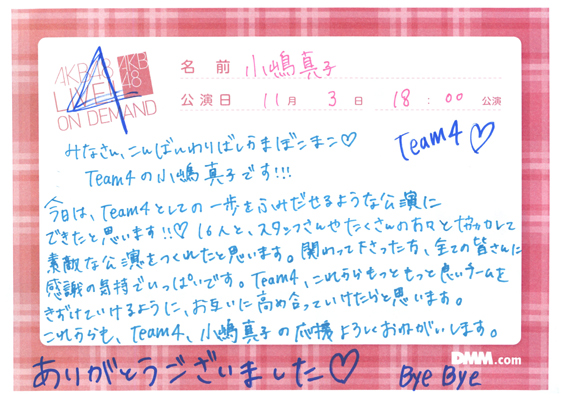 AKB48
LIVE!!
ON DEMAND
AKB
48
4
名前 小嶋真子
公演日 11月 3日 18:00 公演
Team4♡
みなさん、こんばんわりばしかまぼこまこ♡
Team4の小嶋真子です!!!
今日は、Team4としての一歩をふみだせるような公演に
できたと思います!!♡ 16人と、スタッフさんやたくさんの方々と協力して
素敵な公演をつくれたと思います。関わって下さった方、全ての皆さんに
感謝の気持でいっぱいです。Team4、これからもっともっと良いチームを
きずけていけるように、お互いに高め合っていけたらと思います。
これからも、Team4、小嶋真子の応援よろしくおねがいします。
ありがとうございました♡
Bye Bye
DMM.com